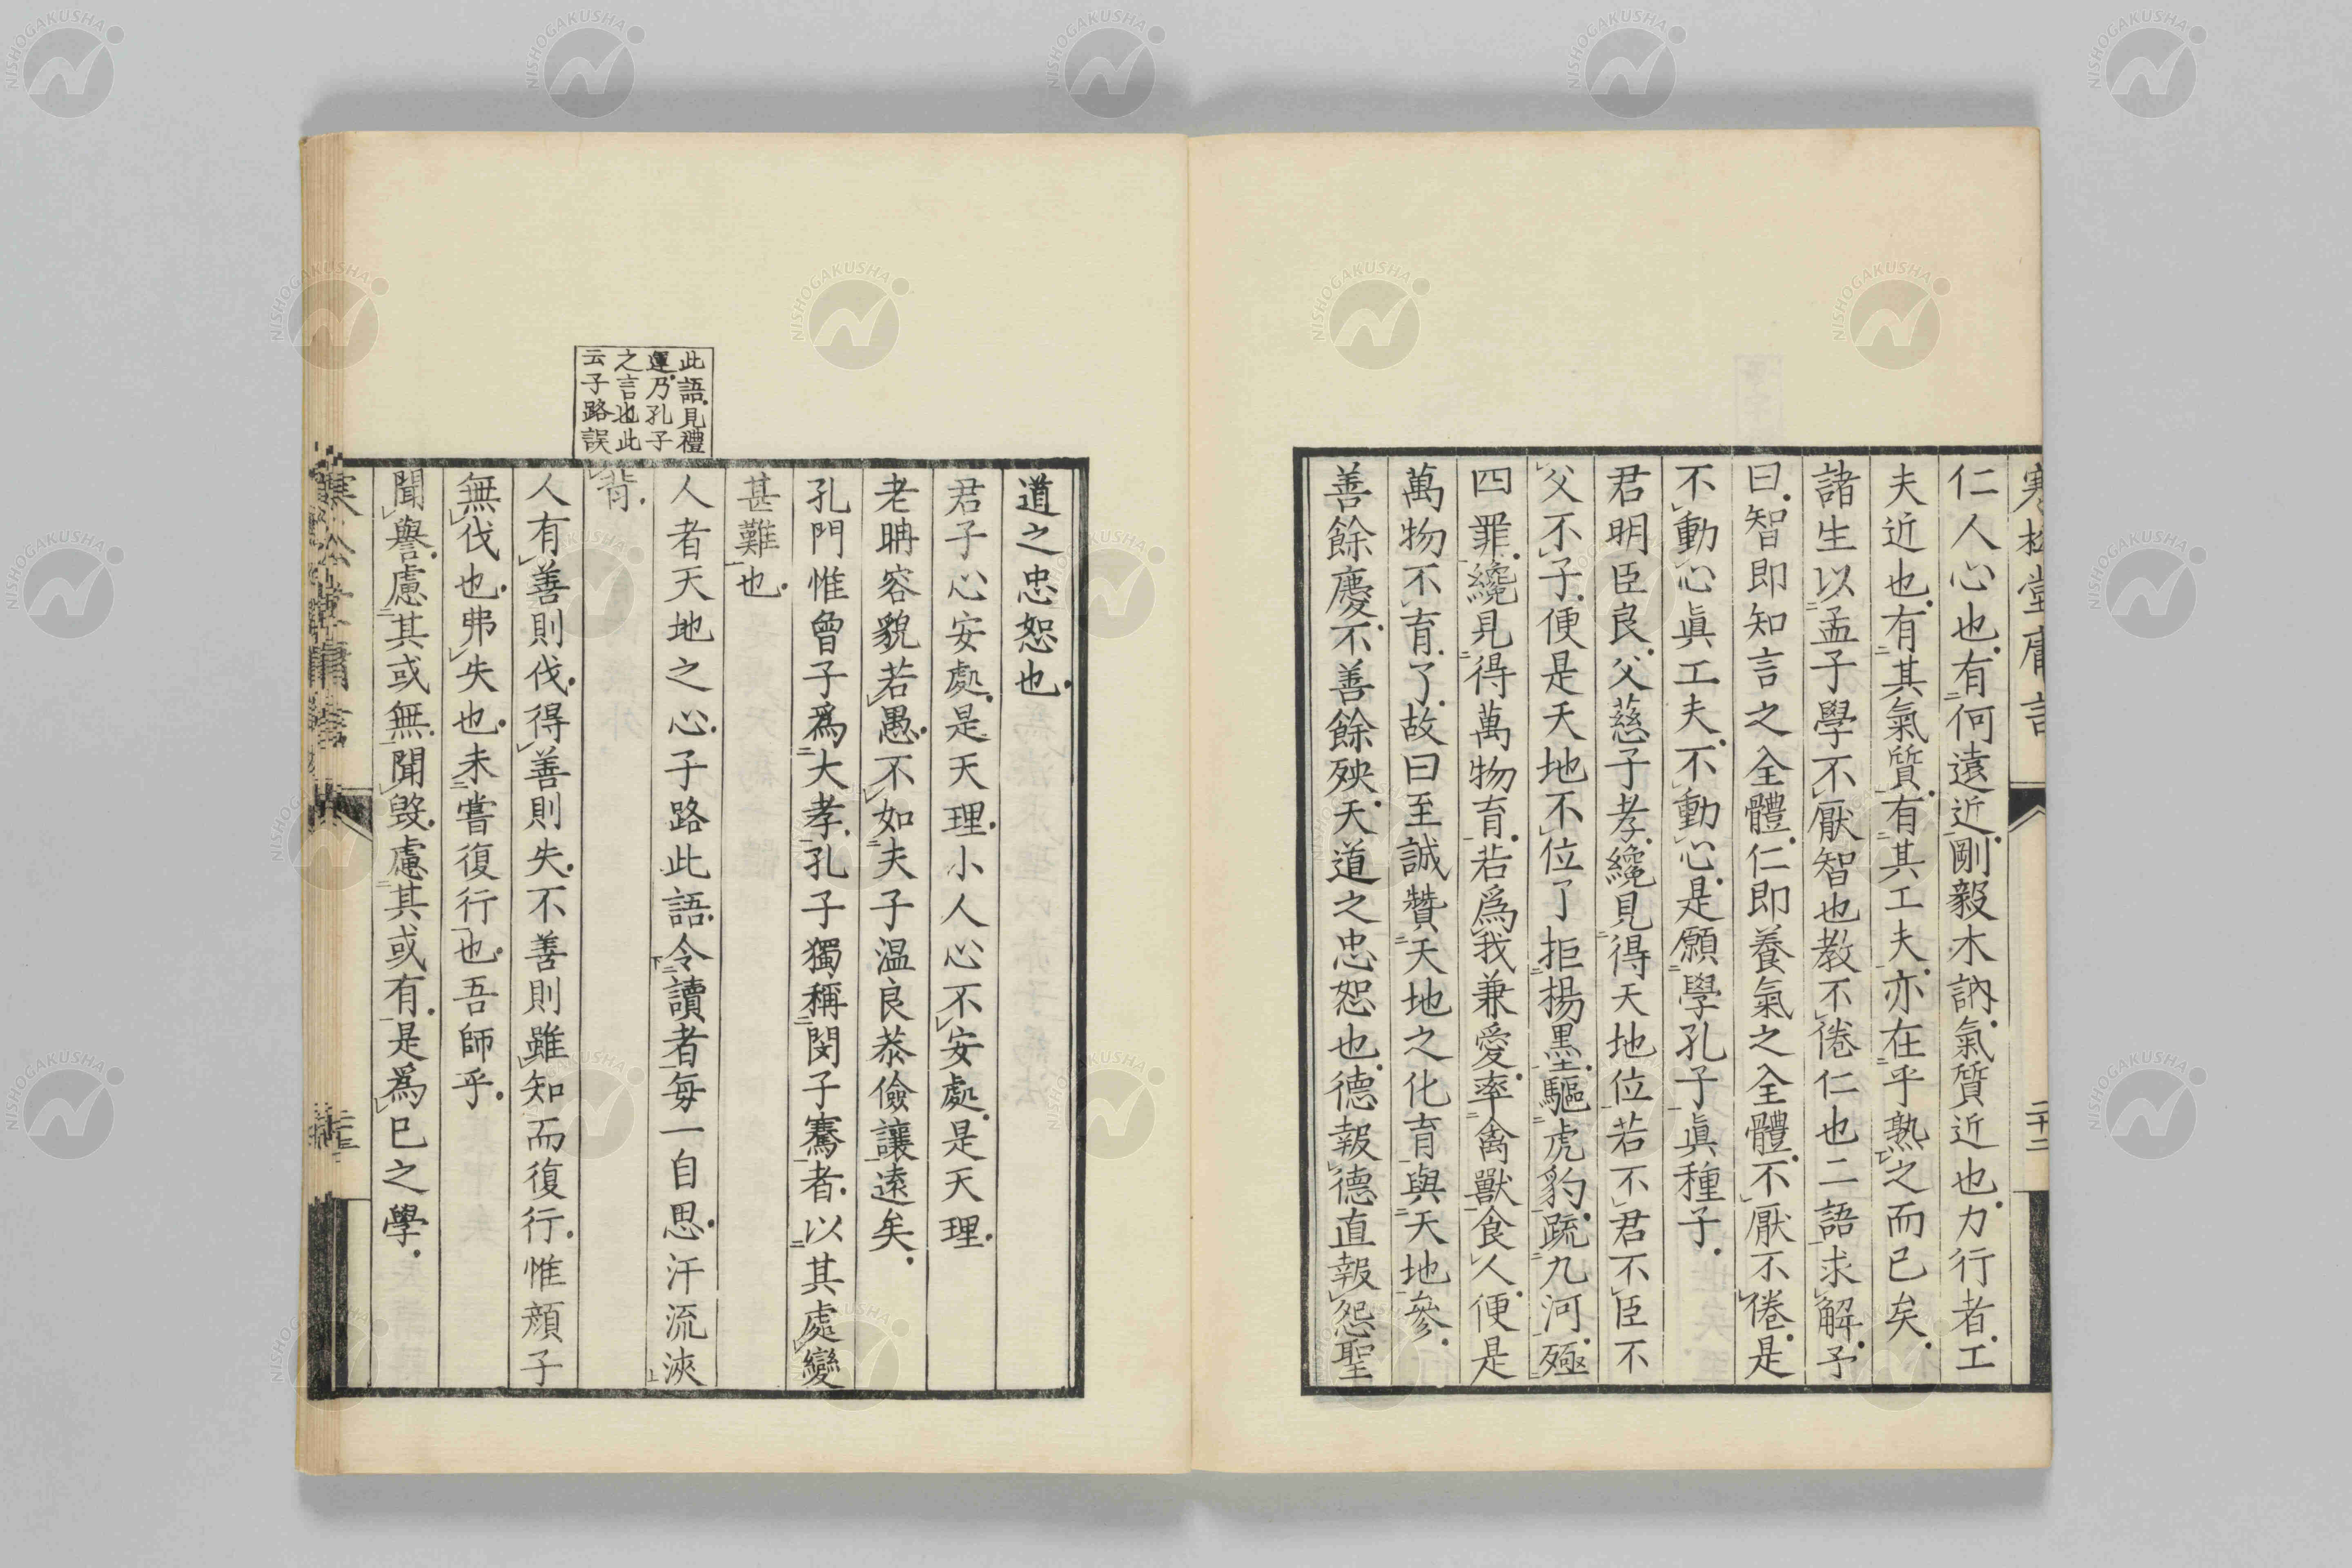 仁人心也有何遠近剛毅木訥氣質近也力行者工
夫近也有其氣質有其工夫亦在乎熟之而已矣
諸生以孟子學不厭智也教不倦仁也二語求解予
曰智即知言之全體仁即養氣之全體不厭不倦是
不動心眞工夫不動心是願學孔子眞種子
君明臣良父慈子孝纔見得天地位若不君不臣不
父不子便是天地不位了拒楊墨驅虎豹疏九河殛
四罪纔見得萬物育若爲我兼愛率禽獸食人便是
萬物不育了故曰至誠贊天地之化育與天地參
善餘慶不善餘殃天道之忠恕也德報德直報怨聖
二十二
道之忠恕也
君子心安處是天理小人心不安處是天理
老聃容貌若愚不如夫子溫良恭儉讓遠矣
孔門惟曾子爲大孝孔子獨稱閔子騫者以其處變
甚難也
此語見禮
運乃孔子
之言也此
云子路誤
人者天地之心子路此語令讀者每一自思汗流浹
背
人有善則伐得善則失不善則雖知而復行惟顏子
無伐也弗失也未嘗復行也吾師乎
聞譽慮其或無聞毀慮其或有是爲已之學
NISHOGAKUSHA